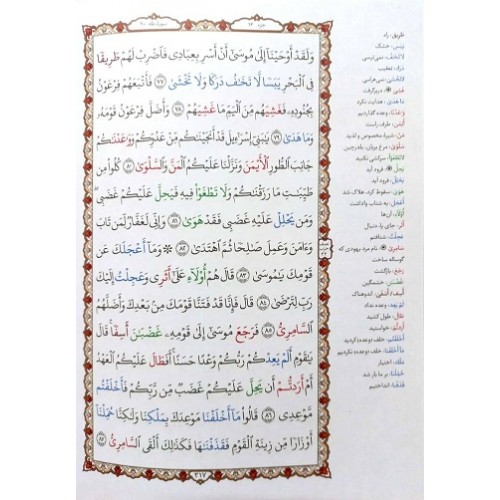 سورة طه ۲۰
جزء ۱۶
وَلَقَدْ أَوْحَيْنَا إِلَىٰ مُوسَىٰ أَنْ أَسْرِ بِعِبَادِي فَاضْرِبْ لَهُمْ طَرِيقًا
فِي الْبَحْرِ يَبَسًا لَا تَخَافُ دَرَكًا وَلَا تَخْشَىٰ ۷۷ فَأَتْبَعَهُمْ فِرْعَوْنُ
بِجُنُودِهِ فَغَشِيَهُم مِّنَ الْيَمِّ مَا غَشِيَهُمْ ۷۸ وَأَضَلَّ فِرْعَوْنُ قَوْمَهُ
وَمَا هَدَىٰ ۷۹ يَا بَنِي إِسْرَائِيلَ قَدْ أَنجَيْنَاكُم مِّنْ عَدُوِّكُمْ وَوَاعَدْنَاكُمْ
جَانِبَ الطُّورِ الْأَيْمَنَ وَنَزَّلْنَا عَلَيْكُمُ الْمَنَّ وَالسَّلْوَىٰ ۸۰ كُلُوا مِن
طَيِّبَاتِ مَا رَزَقْنَاكُمْ وَلَا تَطْغَوْا فِيهِ فَيَحِلَّ عَلَيْكُمْ غَضَبِي
وَمَن يَحْلِلْ عَلَيْهِ غَضَبِي فَقَدْ هَوَىٰ ۸۱ وَإِنِّي لَغَفَّارٌ لِّمَن تَابَ
وَآمَنَ وَعَمِلَ صَالِحًا ثُمَّ اهْتَدَىٰ ۸۲ وَمَا أَعْجَلَكَ عَن
قَوْمِكَ يَا مُوسَىٰ ۸۳ قَالَ هُمْ أُولَاءِ عَلَىٰ أَثَرِي وَعَجِلْتُ إِلَيْكَ
رَبِّ لِتَرْضَىٰ ۸۴ قَالَ فَإِنَّا قَدْ فَتَنَّا قَوْمَكَ مِن بَعْدِكَ وَأَضَلَّهُمُ
السَّامِرِيُّ ۸۵ فَرَجَعَ مُوسَىٰ إِلَىٰ قَوْمِهِ غَضْبَانَ أَسِفًا قَالَ
يَا قَوْمِ أَلَمْ يَعِدْكُمْ رَبُّكُمْ وَعْدًا حَسَنًا أَفَطَالَ عَلَيْكُمُ الْعَهْدُ
أَمْ أَرَدتُّمْ أَن يَحِلَّ عَلَيْكُمْ غَضَبٌ مِّن رَّبِّكُمْ فَأَخْلَفْتُم
مَّوْعِدِي ۸۶ قَالُوا مَا أَخْلَفْنَا مَوْعِدَكَ بِمَلْكِنَا وَلَٰكِنَّا حُمِّلْنَا
أَوْزَارًا مِّن زِينَةِ الْقَوْمِ فَقَذَفْنَاهَا فَكَذَٰلِكَ أَلْقَى السَّامِرِيُّ ۸۷
۳۱۷
طَریق: راه
یَبَس: خشک
لاتَخافُ: نمی‌ترسی
دَرَک: تعقیب
لاتَخشی: نمی‌هراسی
غَشِیَ: دربرگرفت
ما هَدی: هدایت نکرد
وٰعَدنا: وعده گذاردیم
اَیمَن: طرف راست
مَنّ: شیره مخصوص و لذید
سَلوی: مرغ بریان، بلدرچین
لاتَطغَوا: سرکشی نکنید
یَحِلَّ: فرود آید
یَحلِل: فرود آید
هَوی: سقوط کرد، هلاک شد
اَعجَلَ: به شتاب واداشت
اُولاءِ: آن‌ها
اَثَر: جای پا، دنبال
عَجِلتُ: شتافتم
سامِریّ: نام مرد یهودی که
گوساله ساخت
رَجَعَ: بازگشت
غَضبٰن: خشمگین
لَم یَعِد: وعده نداد
طالَ: طول کشید
اَرَدتُم: خواستید
اَخلَفتُم: خلف (وعده) کردید
ما اَخلَفنا: خلف (وعده) نکردیم
مَلک: اختیار
حُمِّلنا: بر ما بار شد
قَذَفنا: انداختیم